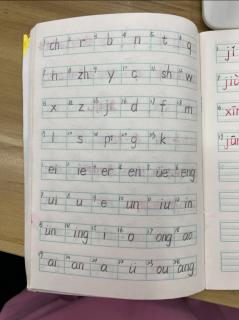 ch r b n t q
h zh y c sh w
x z j d f m
l s p g k
ei ie er en üe eng
ui u e un iu in
ün ing i o ong ao
ai an a ü ou ang